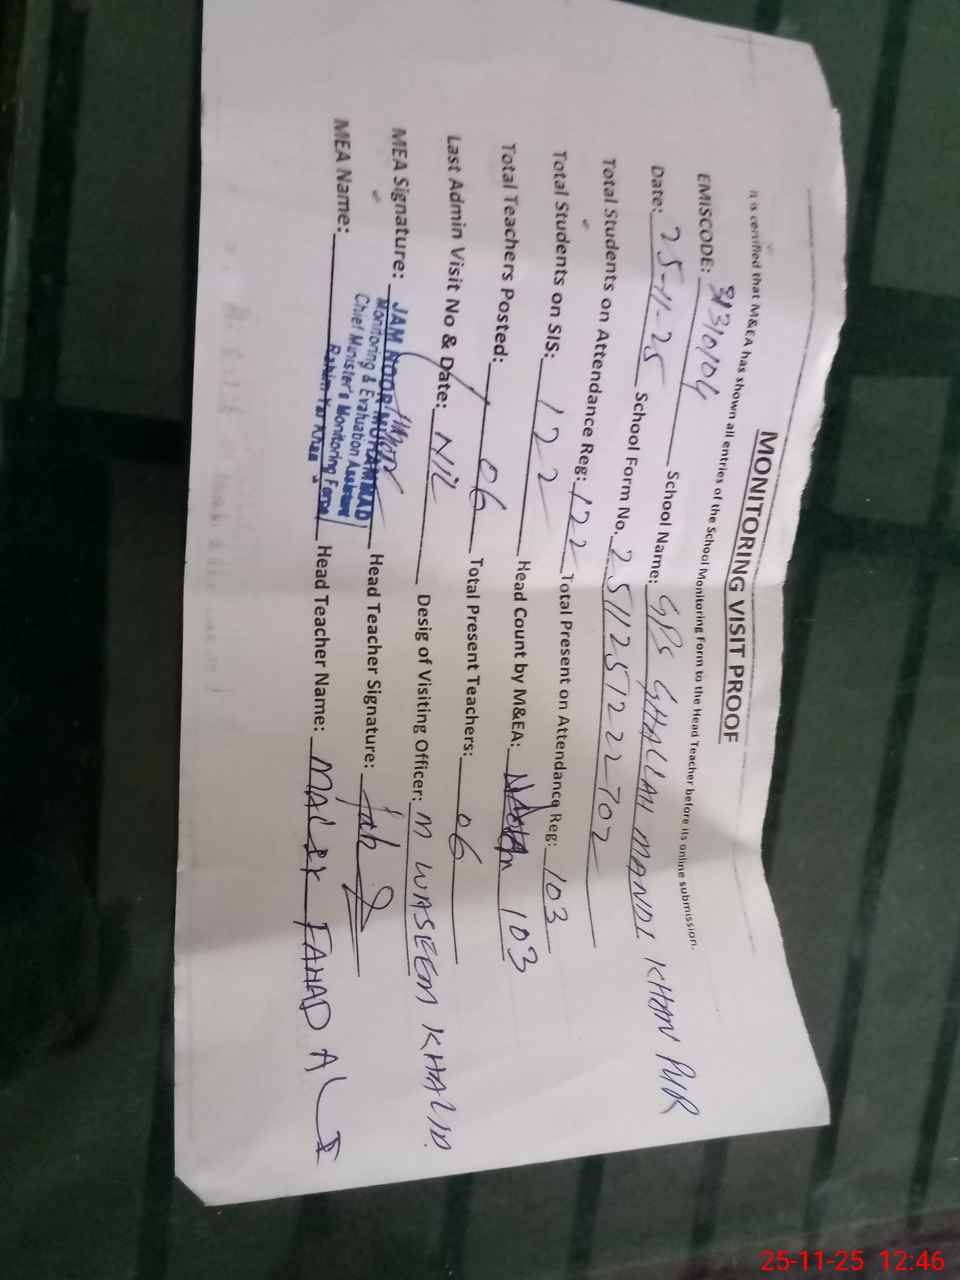 MONITORING VISIT PROOF
It is certified that M&EA has shown all entries of the School Monitoring Form to the Head Teacher before its online submission.
EMISCODE: 31310104 School Name: GPS GHALLAH MANDI KHAN PUR
Date: 25-11-25 School Form No. 251125122702
Total Students on Attendance Reg: 122 Total Present on Attendance Reg: 103
Total Students on SIS: 122 Head Count by M&EA: 103
Total Teachers Posted: 06 Total Present Teachers: 06
Last Admin Visit No & Date: Nil Desig of Visiting Officer: M WASEEM KHALID
MEA Signature: Head Teacher Signature:
JAM NOOR MUHAMMAD
Monitoring & Evaluation Assistant
Chief Minister's Monitoring Force
Rahim Yar Khan
MEA Name: Head Teacher Name: MALIK FAHAD ALI
25-11-25 12:46